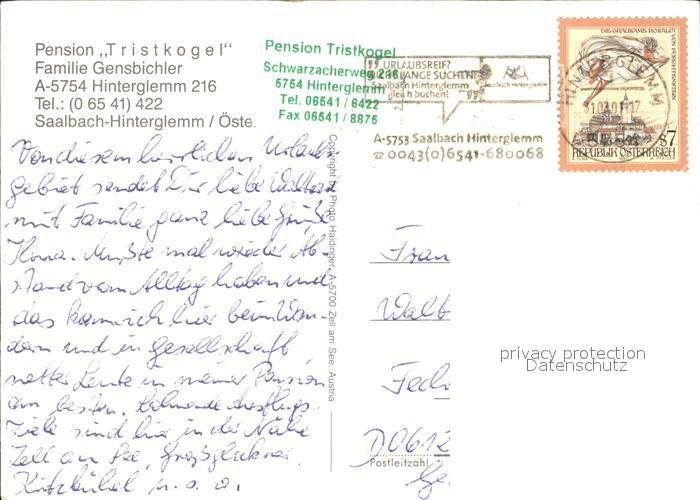 Pension „Tristkogel"
Familie Gensbichler
A-5754 Hinterglemm 216
Tel.: (0 65 41) 422
Saalbach-Hinterglemm / Öste.
Pension Tristkogel
Schwarzacherweg 216
5754 Hinterglemm
Tel. 06541 / 6422
Fax 06541 / 8875
URLAUBSREIF?
LANGE SUCHEN
Saalbach Hinterglemm
gleich buchen!
Saalbach Hinterglemm
A-5753 Saalbach Hinterglemm
☎ 0043(0)6541-680068
DIE GRAUSAME ROSALIA
VON FORCHTENSTEIN
HINTERGLEMM
S7
REPUBLIK ÖSTERREICH
Von diesem herrlichen Urlaubs-
gebiet sendet Dir liebe Waltraud
mit Familie ganz liebe Grüße
Ilona. Mußte mal wieder Ab-
stand vom Alltag haben und
das kann ich hier beim Wan-
dern und in Gesellschaft
netter Leute in meiner Pension
am besten. Lohnende Ausflugs-
ziele sind hier in der Nähe
Zell am See, Großglockner,
Kitzbühel u.s.w.
Copyright Photo Haidinger, A-5700 Zell am See, Austria
Frau
Walt
Fech
D0612
Postleitzahl
Ge
privacy protection
Datenschutz